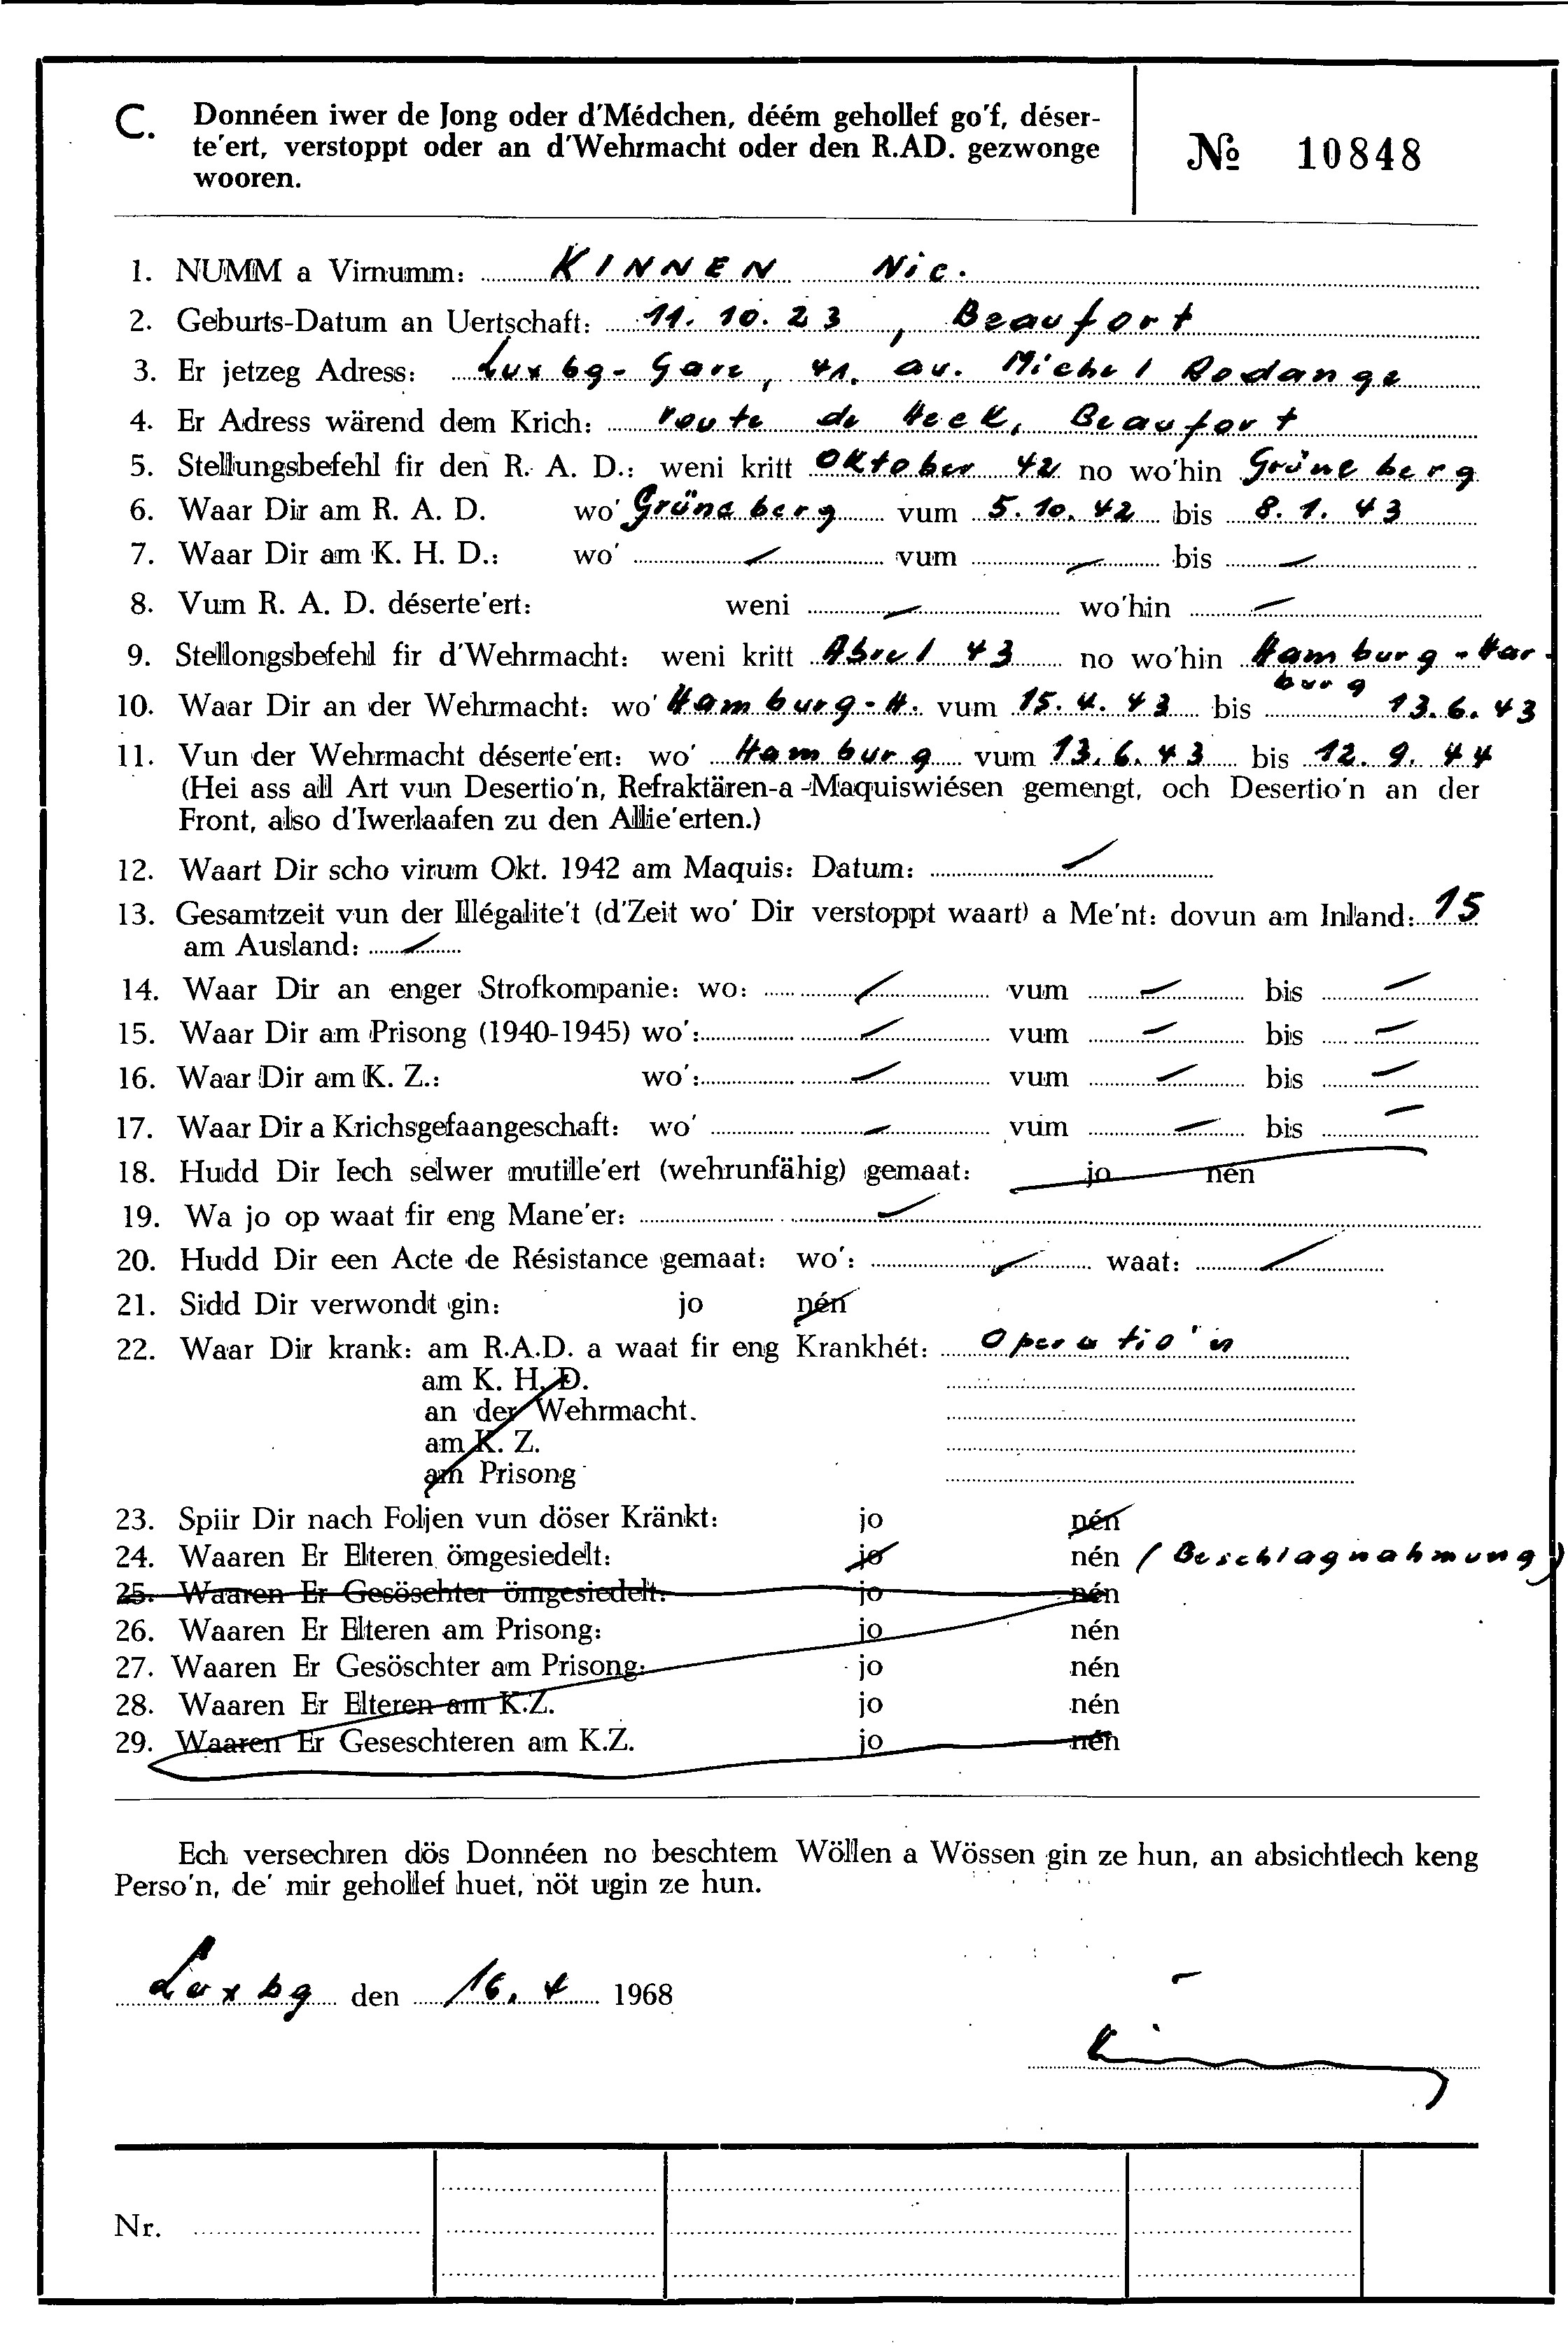 C. Donnéen iwer de Jong oder d'Médchen, déém gehollef go'f, déser-
te'ert, verstoppt oder an d'Wehrmacht oder den R.AD. gezwonge
wooren.
№ 10848
1. NUMM a Virnumm: KINNEN Nic.
2. Geburts-Datum an Uertschaft: 11.10.23, Beaufort
3. Er jetzeg Adress: Luxbg-Gare, 41, av. Michel Rodange
4. Er Adress wärend dem Krich: route de Heck, Beaufort
5. Stellungsbefehl fir den R. A. D.: weni kritt Oktober 42 no wo'hin Grüneberg
6. Waar Dir am R. A. D. wo' Grüneberg vum 5.10.42 bis 8.1.43
7. Waar Dir am K. H. D.: wo' — vum — bis —
8. Vum R. A. D. déserte'ert: weni — wo'hin —
9. Stellongsbefehl fir d'Wehrmacht: weni kritt Abrel 43 no wo'hin Hamburg-Har-
burg
10. Waar Dir an der Wehrmacht: wo' Hamburg-H. vum 15.4.43 bis 13.6.43
11. Vun der Wehrmacht déserte'ert: wo' Hamburg vum 13.6.43 bis 12.9.44
(Hei ass all Art vun Desertio'n, Refraktären-a-Maquiswiésen gemengt, och Desertio'n an der
Front, also d'Iwerlaafen zu den Allie'erten.)
12. Waart Dir scho virum Okt. 1942 am Maquis: Datum: —
13. Gesamtzeit vun der Illégalite't (d'Zeit wo' Dir verstoppt waart) a Me'nt: dovun am Inland: 15
am Ausland: —
14. Waar Dir an enger Strofkompanie: wo: — vum — bis —
15. Waar Dir am Prisong (1940-1945) wo': — vum — bis —
16. Waar Dir am K. Z.: wo': — vum — bis —
17. Waar Dir a Krichsgefaangeschaft: wo' — vum — bis —
18. Hudd Dir Iech selwer mutille'ert (wehrunfähig) gemaat: jo nén
19. Wa jo op waat fir eng Mane'er: —
20. Hudd Dir een Acte de Résistance gemaat: wo': — waat: —
21. Sidd Dir verwondt gin: jo nén
22. Waar Dir krank: am R.A.D. a waat fir eng Krankhét: Operatio'n
am K. H. D.
an der Wehrmacht.
am K. Z.
am Prisong
23. Spiir Dir nach Foljen vun döser Kränkt: jo nén
24. Waaren Er Elteren ömgesiedelt: jo nén (Beschlagnahmung)
25. Waaren Er Gesöschter ömgesiedelt: jo nén
26. Waaren Er Elteren am Prisong: jo nén
27. Waaren Er Gesöschter am Prisong: jo nén
28. Waaren Er Elteren am K.Z. jo nén
29. Waaren Er Geseschteren am K.Z. jo nén
Ech versechren dös Donnéen no beschtem Wöllen a Wössen gin ze hun, an absichtlech keng
Perso'n, de' mir gehollef huet, nöt ugin ze hun.
Luxbg den 16.4 1968
Kinnen
Nr.